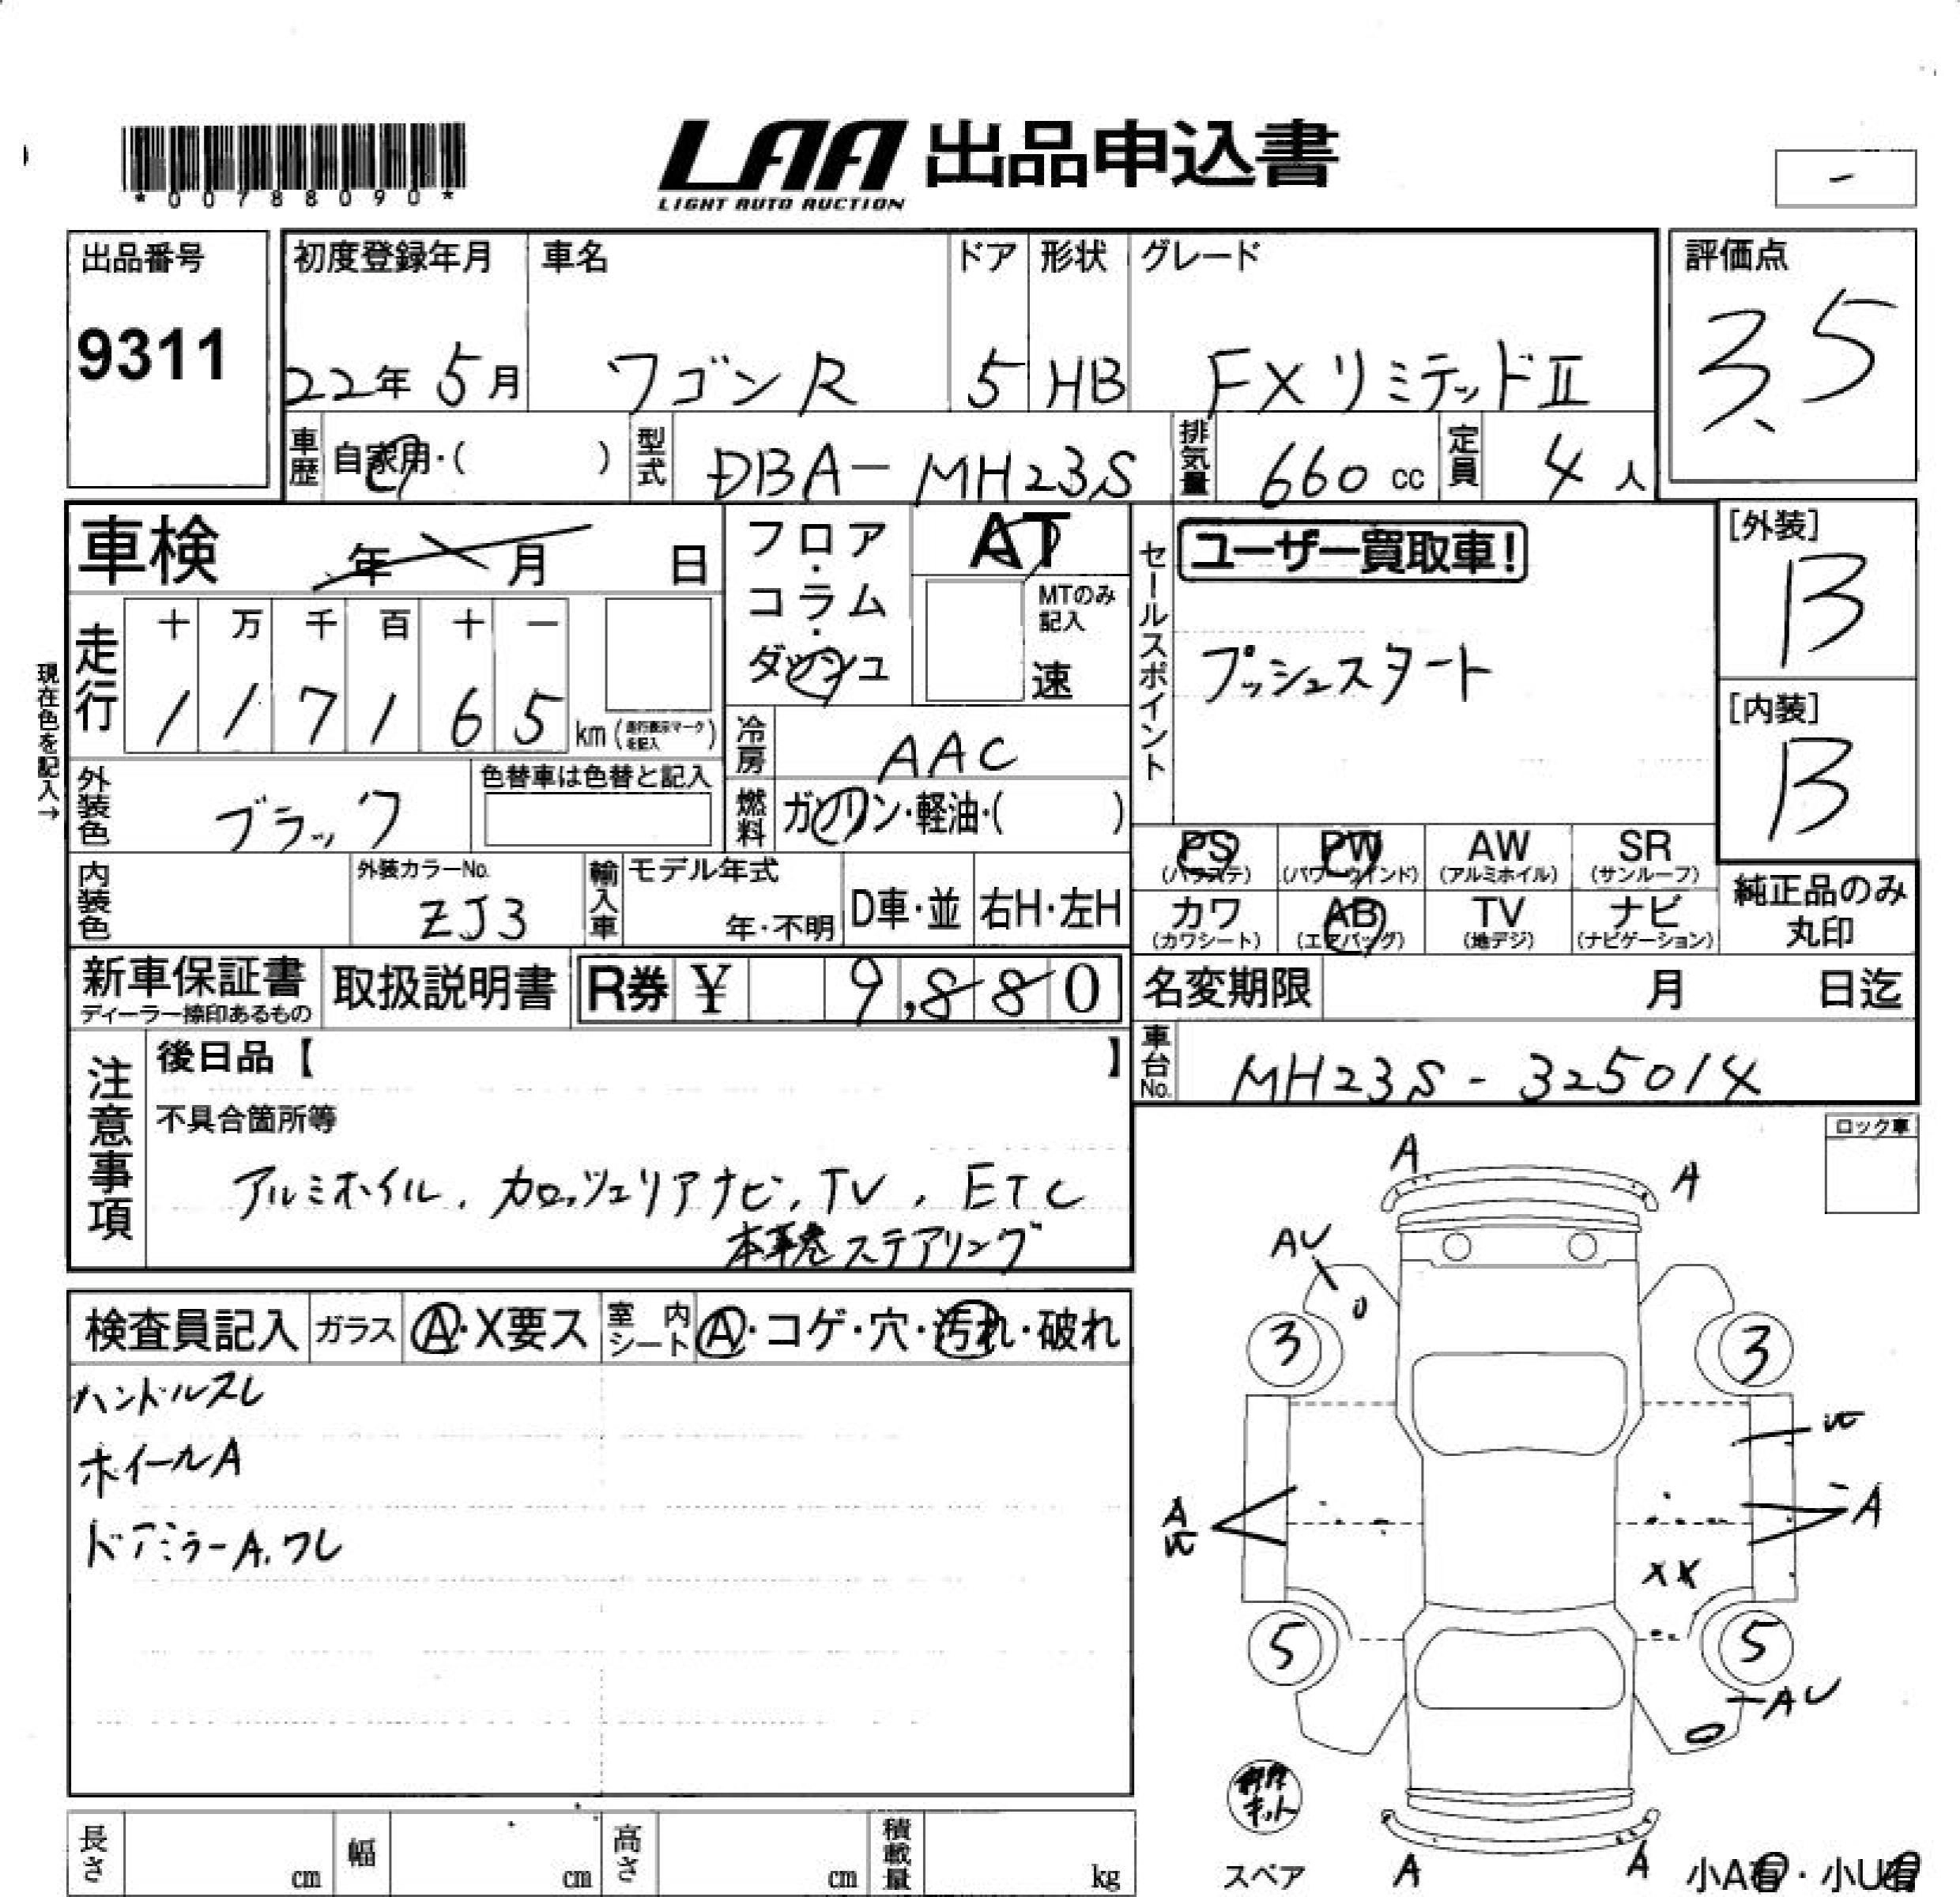 *00788090*
LAA 出品申込書
LIGHT AUTO AUCTION
-
出品番号 初度登録年月 車名 ドア 形状 グレード 評価点
9311 22年 5月 ワゴンR 5 HB FXリミテッドⅡ 3.5
車歴 自家用・( ) 型式 DBA-MH23S 排気量 660cc 定員 4人
車検 年 月 日
フロア・コラム・ダッシュ
AT
MTのみ記入
速
セールスポイント
ユーザー買取車!
プッシュスタート
[外装]
B
[内装]
B
現在色を記入→
走行 十 万 千 百 十 一
1 1 7 1 6 5 km (走行表示マークを記入)
冷房 AAC
燃料 ガソリン・軽油・( )
外装色 ブラック 色替車は色替と記入
内装色 外装カラーNo. ZJ3 輸入車 モデル年式 年・不明 D車・並 右H・左H
PS (パワステ) PW (パワーウインド) AW (アルミホイル) SR (サンルーフ)
カワ (カワシート) AB (エアバッグ) TV (地デジ) ナビ (ナビゲーション)
純正品のみ丸印
新車保証書 ディーラー捺印あるもの 取扱説明書 R券 ¥ 9,880
名変期限 月 日迄
車台No. MH23S-325014
注意事項
後日品【 】
不具合箇所等
アルミホイル、カロッツェリアナビ、TV、ETC
本革巻ステアリング
ロック車
検査員記入 ガラス A・X要ス 室内シート A・コゲ・穴・汚れ・破れ
ハンドルスレ
ホイールA
ドアミラーA、ワレ
A
A
AU
3
3
A
A
5
5
AU
スペア
A
A
小A有・小U有
長さ cm 幅 cm 高さ cm 積載量 kg